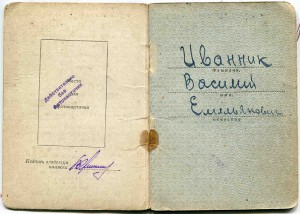 Действительно
без
фотокарточки
Место
фотокарточки
Подпись владельца
книжки
Иванник
ФАМИЛИЯ
Василий
ИМЯ
Емельянович
ОТЧЕСТВО